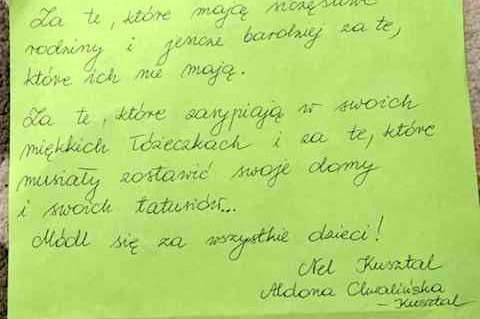 Za te, które mają szczęśliwe
rodziny i jeszcze bardziej za te,
które ich nie mają.
Za te, które zasypiają w swoich
miękkich łóżeczkach i za te, które
musiały zostawić swoje domy
i swoich tatusiów...
Módl się za wszystkie dzieci!
Nel Kusztal
Aldona Chwalińska
- Kusztal